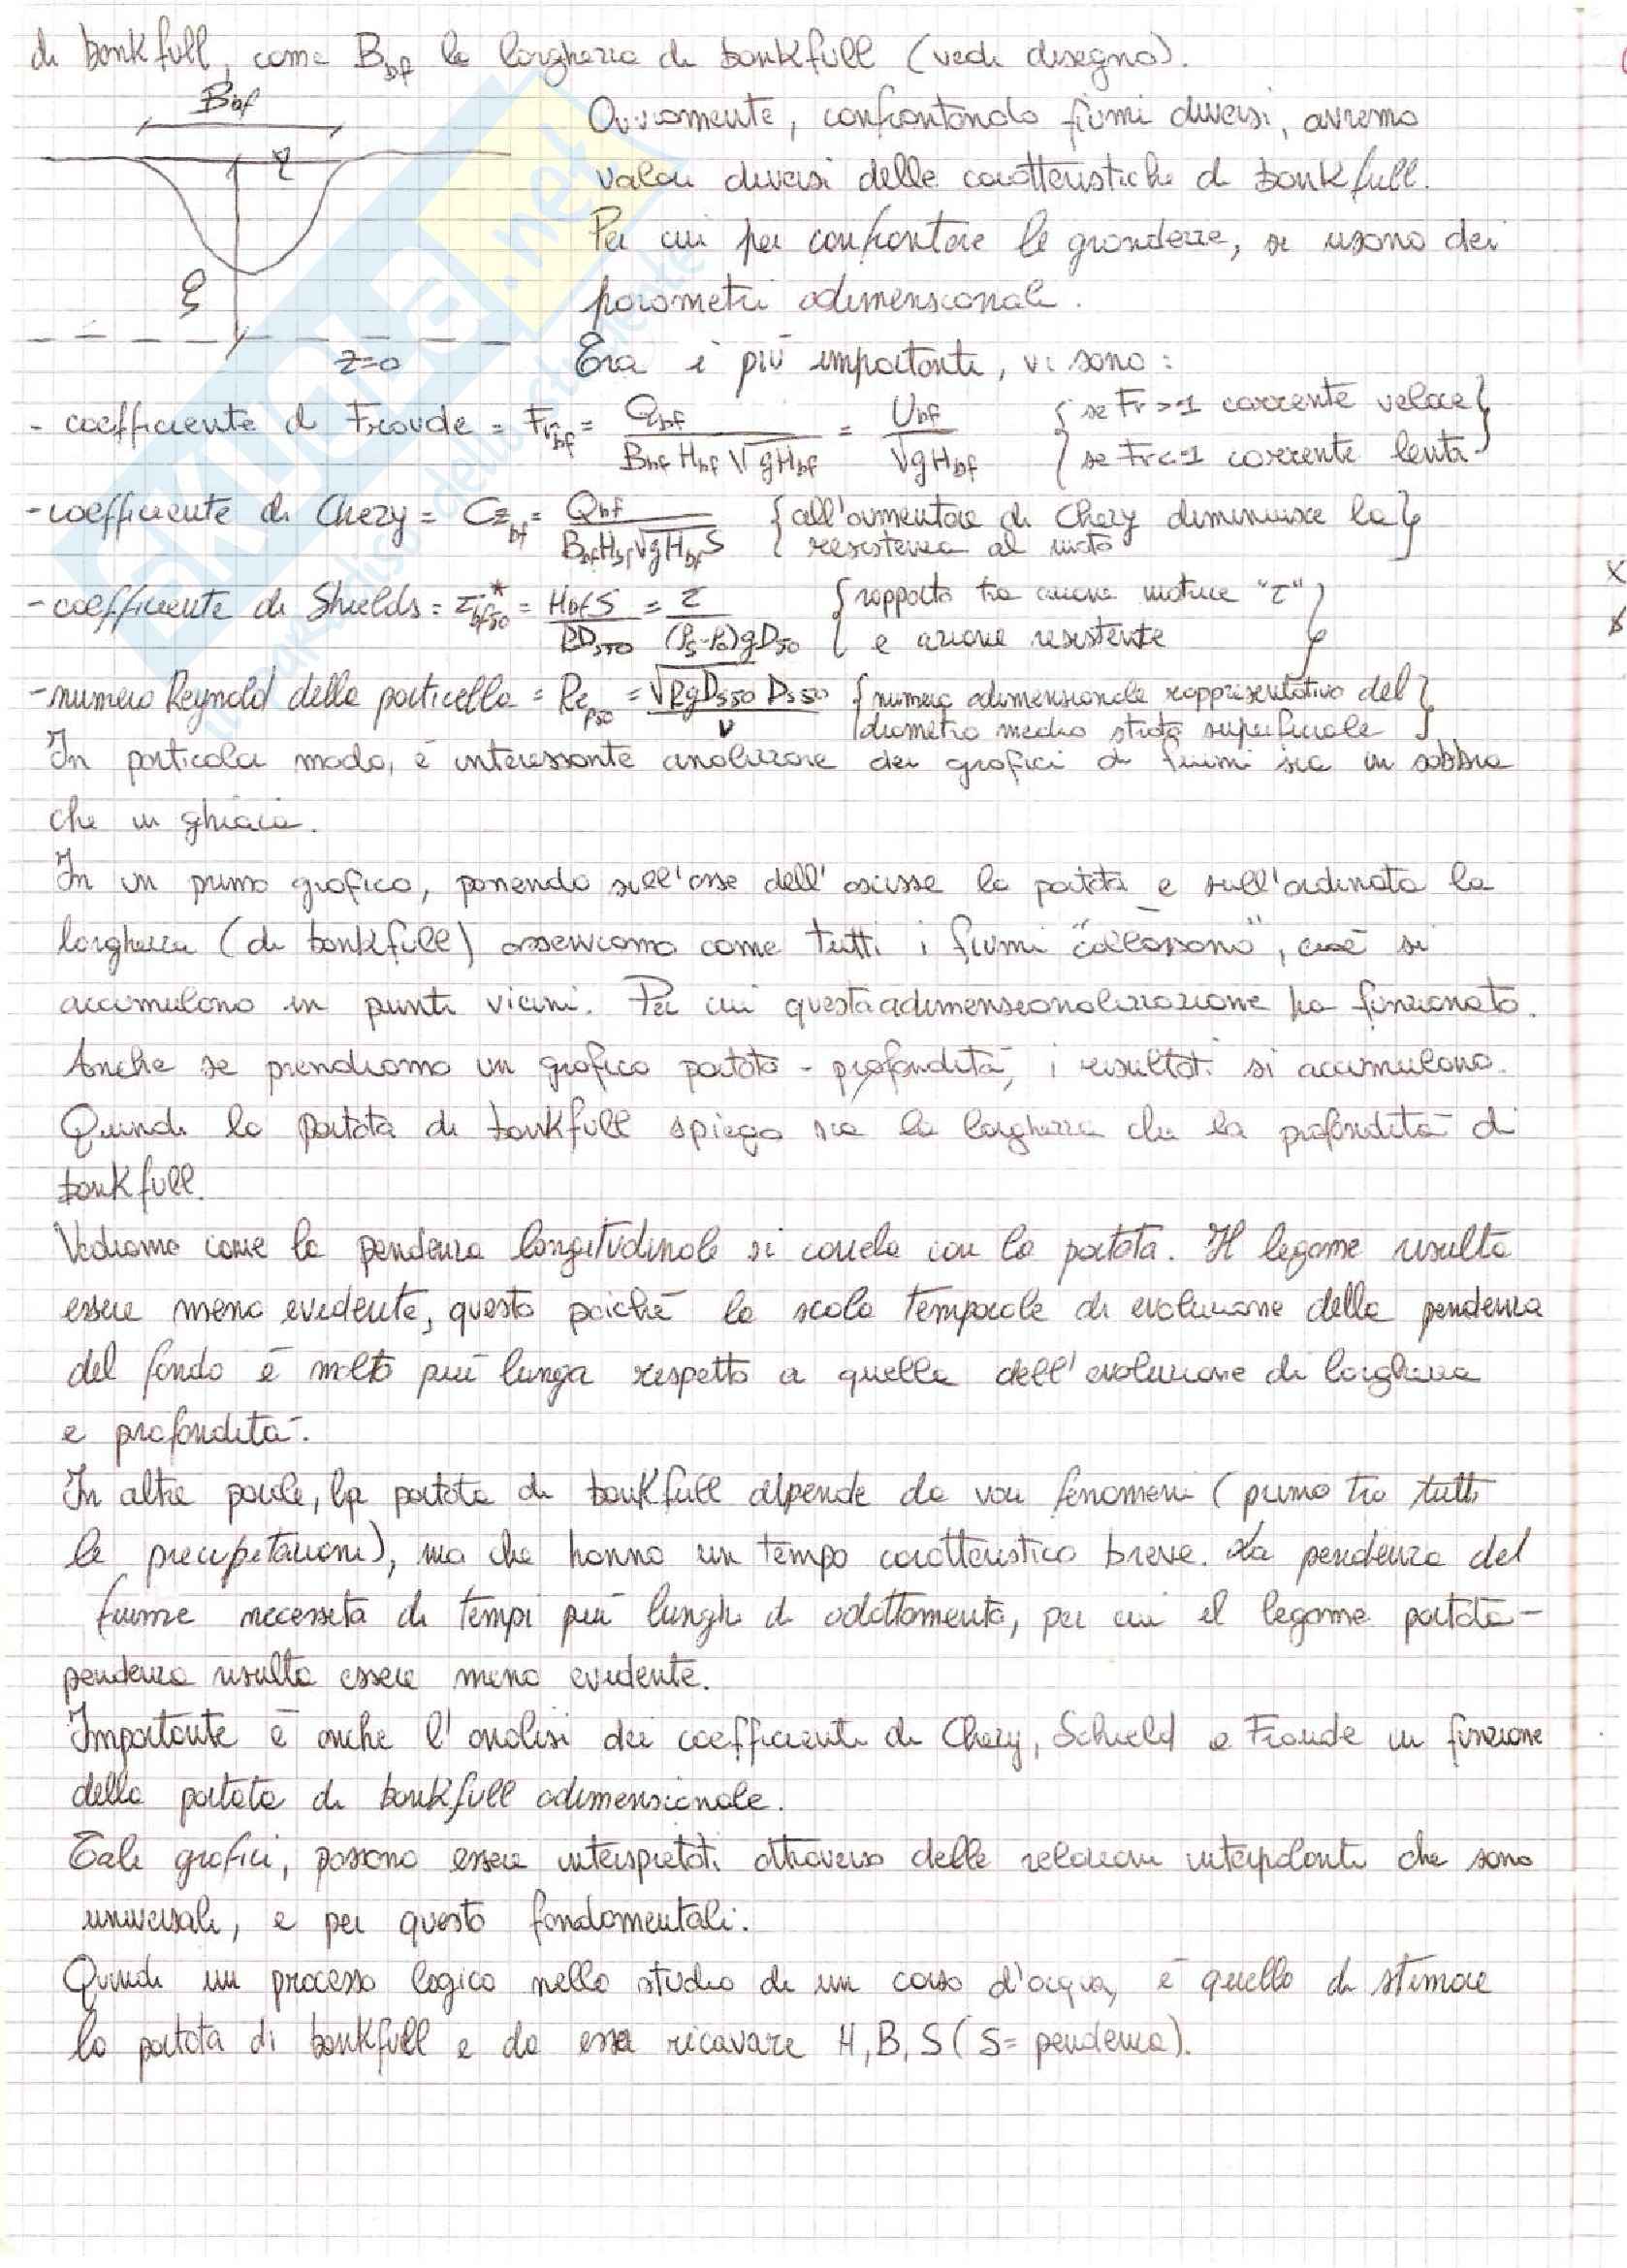 di bankfull, come Bbf la larghezza di bankfull (vedi disegno).
Bbf
Ovviamente, confrontando fiumi diversi, avremo
valori diversi delle caratteristiche di bankfull.
Per cui per confrontare le grandezze, si usano dei
ξ
parametri adimensionali.
z=0
Tra i più importanti, vi sono:
- coefficiente di Froude = Frbf = Qbf / (Bbf Hbf √gHbf) = Ubf / √gHbf {se Fr>1 corrente veloce
se Fr<1 corrente lenta}
- coefficiente di Chezy = Czbf = Qbf / (Bbf Hbf √gHbf S) {all'aumentare di Chezy diminuisce la
resistenza al moto}
- coefficiente di Shields = τ*bf50 = Hbf S / (R Ds50) = τ / ((ρs-ρ)gD50) {rapporto tra azione motrice "τ"
e azione resistente}
- numero Reynold della particella = Rep50 = √RgDs50 Ds50 / ν {numero adimensionale rappresentativo del
diametro medio strato superficiale}
In particolar modo, è interessante analizzare dei grafici di fiumi sia in sabbia
che in ghiaia.
In un primo grafico, ponendo sull'asse dell'ascisse la portata e sull'ordinata la
larghezza (di bankfull) osserviamo come tutti i fiumi "collassano", cioè si
accumulano in punti vicini. Per cui questa adimensionalizzazione ha funzionato.
Anche se prendiamo un grafico portata - profondità, i risultati si accumulano.
Quindi la portata di bankfull spiega sia la larghezza che la profondità di
bankfull.
Vediamo come la pendenza longitudinale si correla con la portata. Il legame risulta
essere meno evidente, questo poichè la scala temporale di evoluzione della pendenza
del fondo è molto più lunga rispetto a quella dell'evoluzione di larghezza
e profondità.
In altre parole, la portata di bankfull dipende da vari fenomeni (primo tra tutti
le precipitazioni), ma che hanno un tempo caratteristico breve. La pendenza del
fiume necessita di tempi più lunghi di adattamento, per cui il legame portata-
pendenza risulta essere meno evidente.
Importante è anche l'analisi dei coefficienti di Chezy, Schield e Froude in funzione
della portata di bankfull adimensionale.
Tali grafici, possono essere interpretati attraverso delle relazioni interpolanti che sono
universali, e per questo fondamentali.
Quindi un processo logico nello studio di un corso d'acqua, è quello di stimare
la portata di bankfull e da essa ricavare H, B, S (S= pendenza).